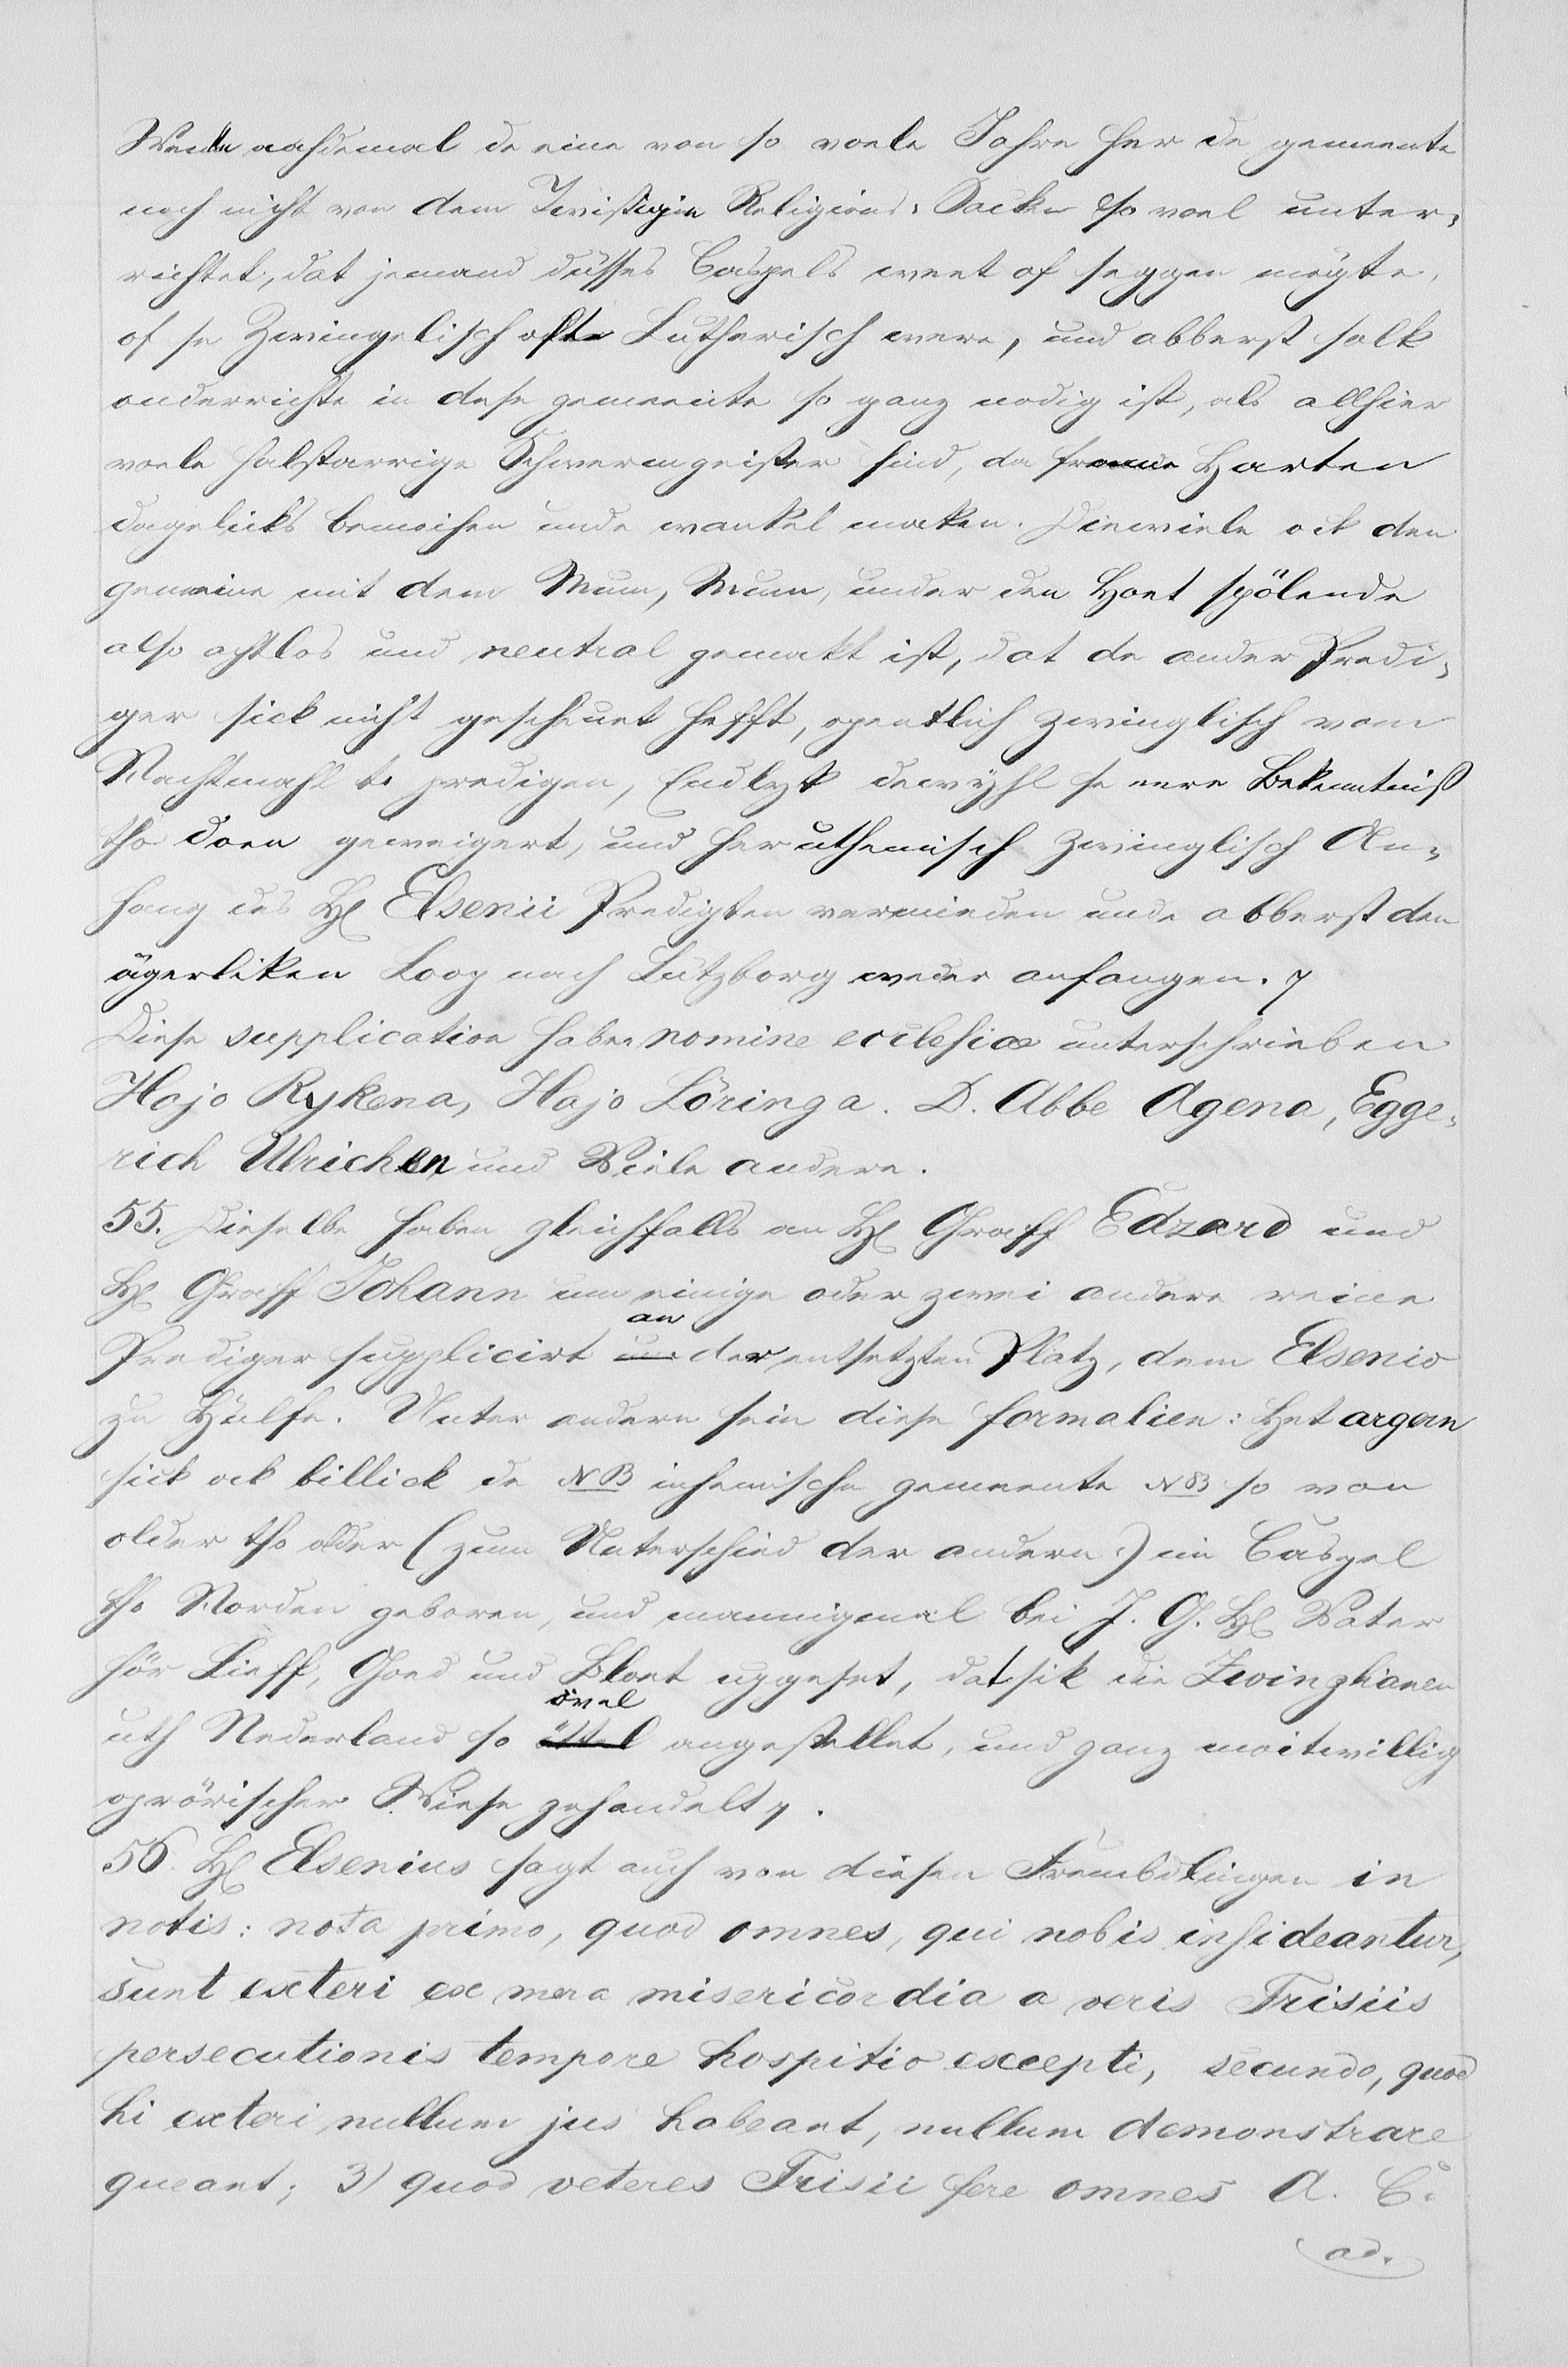 nachdemal de eine von so voele Jahre her de gemeente
noch nicht von dem Twistigin Religions-Sacken so voel unter-
richtet, dat jemand düsses Caspels weet of seggen mögte,
of se Zwingelisch ofte Lutherisch were, und abberst solk
onderrichte in dese gemeente so ganz nodig ist, als allhier
voele halstarrige Schwermgeister sind, de frome Harten
dagelicks bemoihen unde wankel maken. Diewiele ock den
gemeine mit dem Mum, Mum, under den Hoet spölende
also achtlos und neutral gemakt ist, dat de ander Predi-
ger sick nicht gescheuet hefft, opentlich zwinglisch vom
Nachtmahl to predigen, Endlyk dewyhl se eere Bekenntniß
tho doen geweigert, und her uthemisch zwinglisch An-
hang des H. Elsenii Predigten vermieden unde abberst den
ägerliken Loop nach Lützborg weder anfangen.
Diese supplication haben nomine ecclesiæ unterschrieben
Hajo Rykena, Hajo Löringa. D. Abbe Agena, Egge-
rich Ulrichen und Viele andere.
55. Dieselbe haben gleichfalls an H. Graff Edzard und
H. Graff Johann um einige oder zwei andere reine
Prediger supplicirt an der entsetzten Platz, dem Elsenio
zu Hülfe. Unter andern sein diese formalien: Het argern
sick ock billick de NB inhemische gemeente NB so von
older tho older (zum Unterschied der andern) im Caspel
tho Norden geboren, und mannigmal bei J. G. H. Vater
hör Lieff, Goed und Bloet upgeset, dat sik die Zwinglianen
uth Nederland so övel angestellet, und ganz moitwillig
oprörischer Wiese gehandelt.
56. H. Elsenius sagt auch von diesen Frembdlingen in
notis: nota primo, quod omnes, qui nobis insideantur,
sunt exteri ex mera misericordia a veris Frisiis
persecutionis tempore hospitio excepti, secundo, quod
hi exteri nullum jus habeant, nullum demonstrare
queant; 3) quod veteres Frisii fere omnes A. C.
ad.